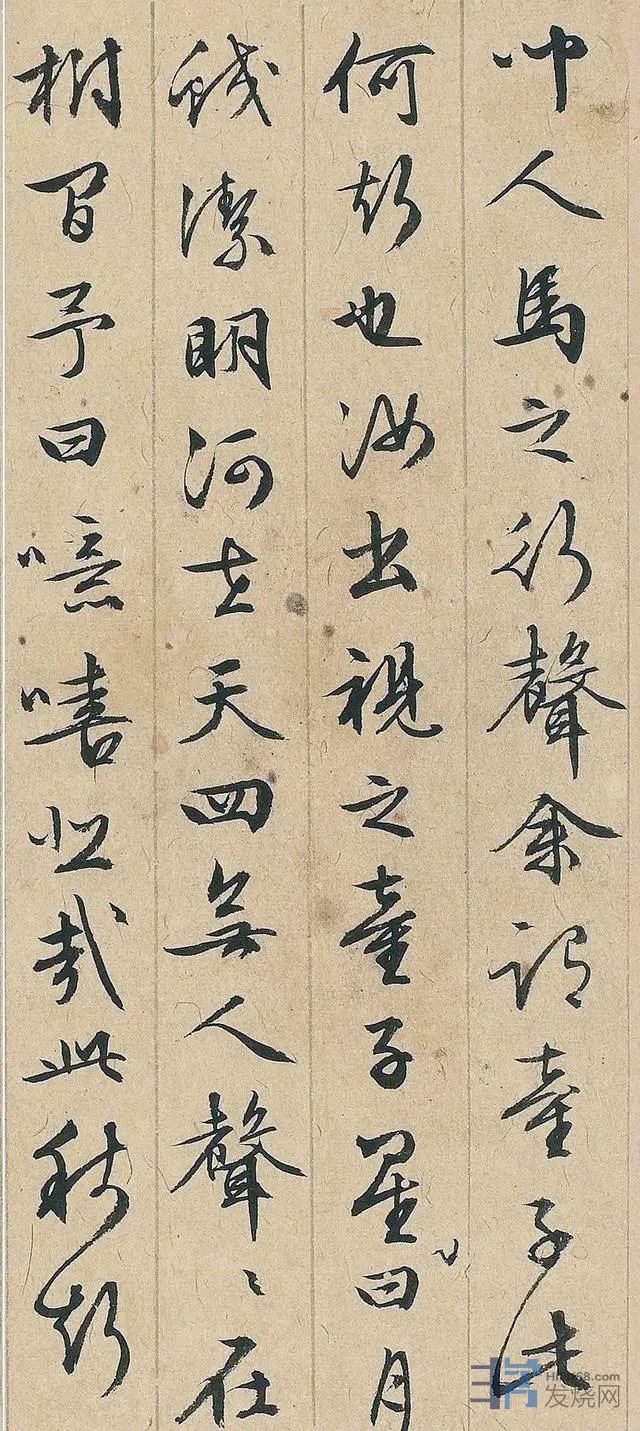 聞人馬之行聲余謂童子此
何聲也汝出視之童子星曰月
皎潔明河在天四無人聲〻在
樹間予曰噫嘻悲哉此秋聲
发烧网